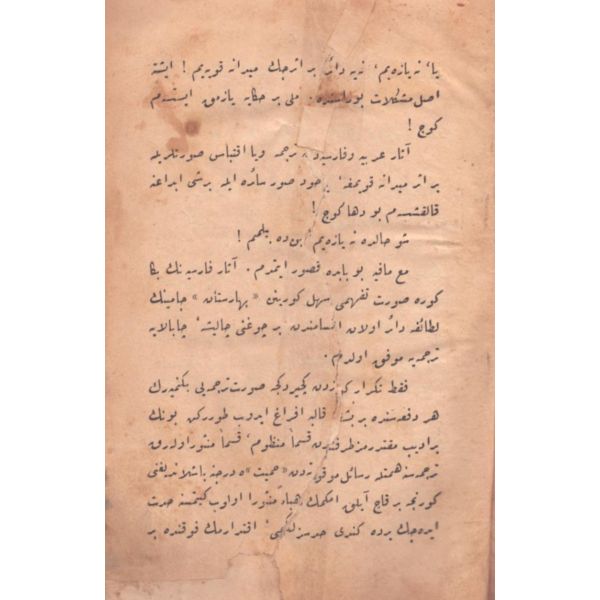 یا، نه یازه‌یم، نه‌یه دائر بر اثرجك میدانه قویه‌یم ! ایشته
اصل مشكلات بوراسنده . ملی بر حكایه یازمق ایستدم
كوج !
آثار عربیه و فارسیه‌دن ترجمه ویا اقتباس صورتلریله
بر اثر میدانه قویمغه، یاخود صور سائره ایله برشی ابداعنه
قالقشدم بو دها كوج !
شو حالده نه یازه‌یم، بن ده بیلمم !
مع مافیه بو بابده قصور ایتمدم . آثار فارسیه‌نك بكا
كوره صورت تفهمی سهل كورینن «بهارستان» جامینك
لطائفه دائر اولان اقسامندن برچوغنی چالیشه، چابالایه
ترجمه‌یه موفق اولدم .
فقط تكرار كوزدن كچیردكجه صورت ترجمه‌یی بكنمیه‌رك
هر دفعه‌سنده بر بشقه قالبه افراغ ایدوب طوررکن بونك
برادیب مقتدرمز طرفندن قسماً منظوم، قسماً منثور اوله‌رق
ترجمه‌سنه همتله رسائل موقوته‌دن «حمیت» ه درجنه باشلاندیغنی
كورنجه بر قاچ آیلق امكمك هباءً منثورا اولوب كیتمسنه حدت
ایده‌جك یرده كندی حدسزلكمی، اقتدارمك فوقنده بر